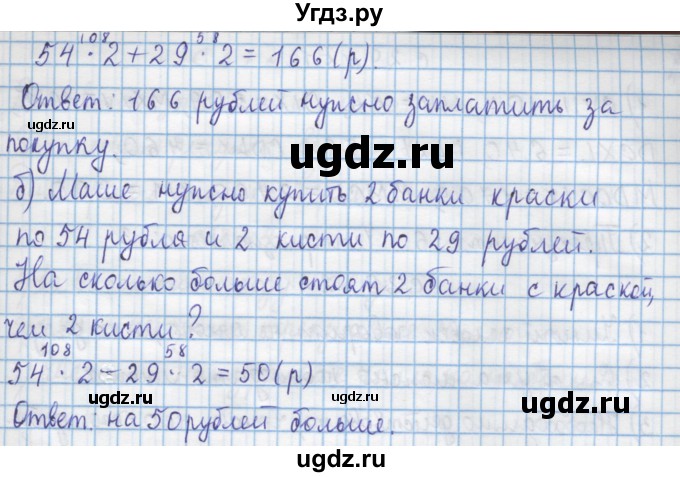 Угдз.ру
108 58
54 · 2 + 29 · 2 = 166 (р).
Ответ: 166 рублей нужно заплатить за
ugdz.ru ugdz.ru
покупку.
ugdz.ru
ugdz.ru
б) Маше нужно купить 2 банки краски
по 54 рубля и 2 кисти по 29 рублей.
ugdz.ru ugdz.ru
На сколько больше стоят 2 банки с краской,
чем 2 кисти?
108 58
54 · 2 - 29 · 2 = 50 (р)
ugdz.ru ugdz.ru
ugdz.ru
Ответ: на 50 рублей больше.
ugdz.ru ugdz.ru
угдз.ру